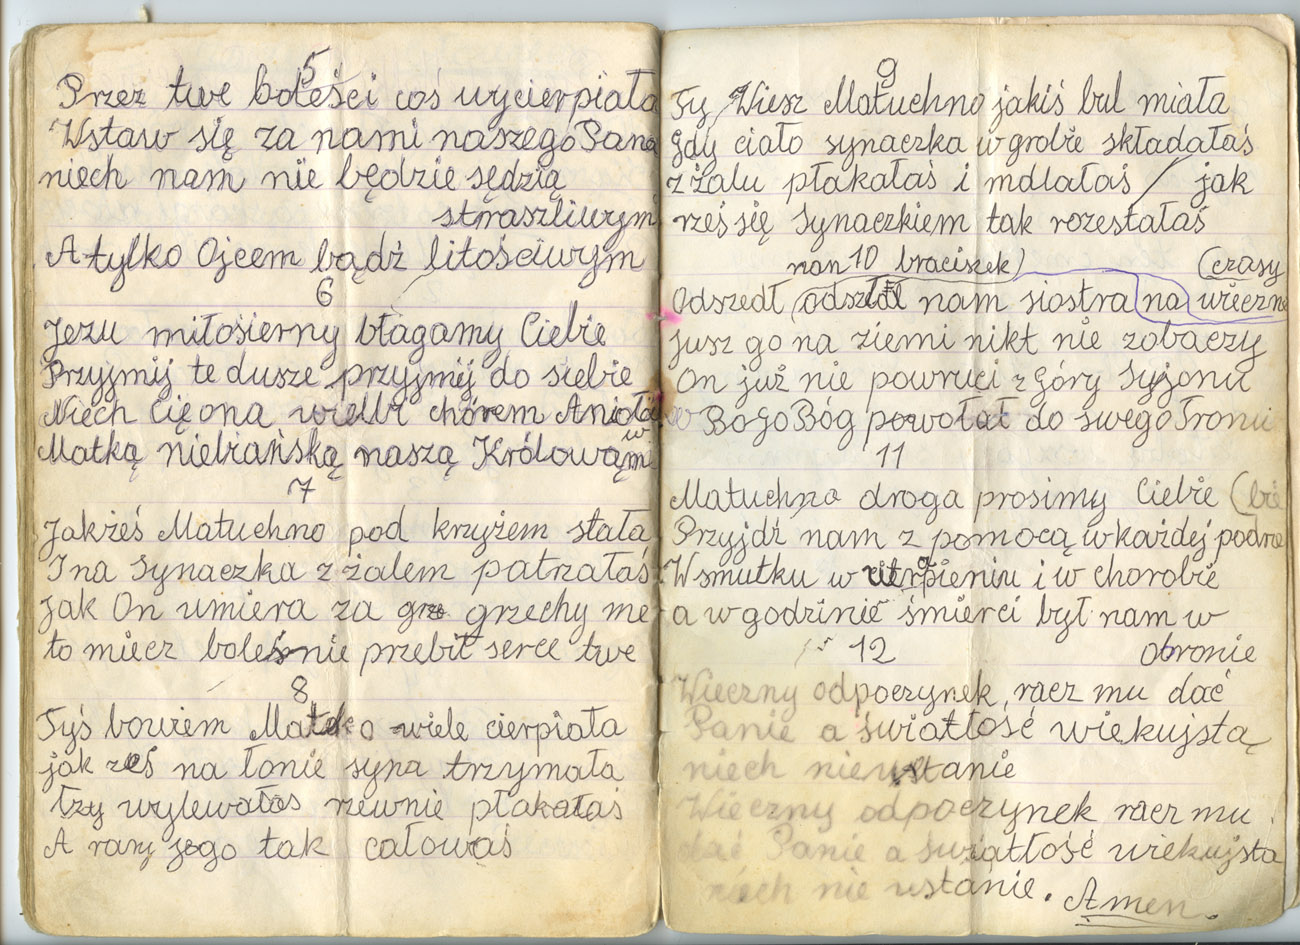 5
Przez twe boleści coś wycierpiała
Wstaw się za nami naszego Pana
niech nam nie będzie sędzią
straszliwym
A tylko Ojcem bądź litościwym
6
Jezu miłosierny błagamy Ciebie
Przyjmij te dusze przyjmij do siebie
Niech Cię ona wielbi chórem Anioła
w
Matką niebiańską naszą Królową
7
Jakżeś Matuchno pod krzyżem stała
I na Synaczka z żalem patrzałaś
Jak On umiera za grzechy me
to miecz boleśnie przebił serce twe
8
Tyś bowiem Matko wiele cierpiała
jak żeś na łonie syna trzymała
łzy wylewałas rzewnie płakałaś
A rany jego tak całowaś
9
Ty Wiesz Matuchno jakiś bul miała
Gdy ciało synaczka w grobie składałaś
z żalu płakałaś i mdlałaś / jak
rześ się Synaczkiem tak rozestałaś
nan 10 braciszek) (czasy
Odszedł (odszedł nam siostra na wieczne
jusz go na ziemi nikt nie zobaczy
On już nie powruci z Góry Syjonu
Bo Go Bóg powołał do swego Tronu
11
Matuchno droga prosimy Ciebie (bie
Przyjdź nam z pomocą w każdej podrze
W smutku w cierpieniu i w chorobie
a w godzinie śmierci był nam w
12 obronie
Wieczny odpoczynek racz mu dać
Panie a światłość wiekujstą
niech nie ustanie
Wieczny odpoczynek racz mu
dać Panie a światłość wiekujsta
niech nie ustanie. Amen.